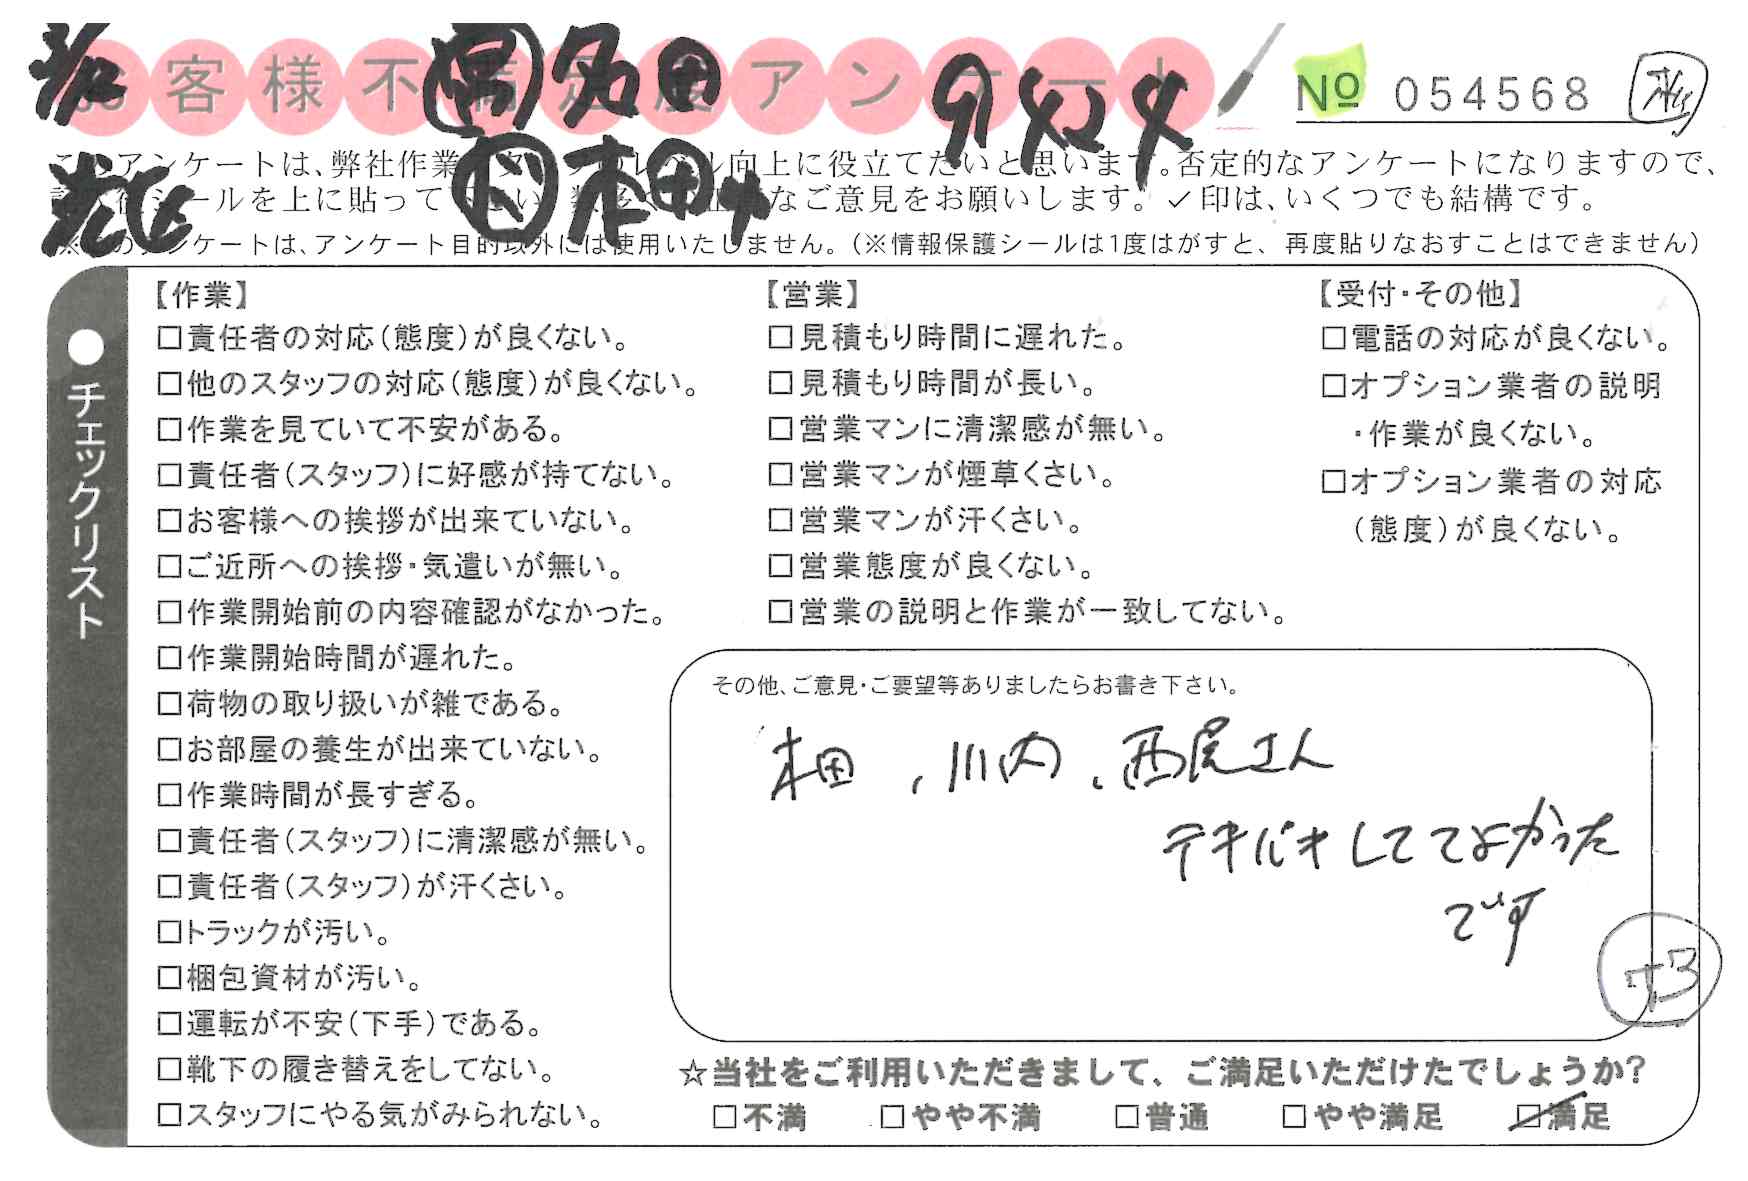 お客様不満足度アンケート
No 054568
多田
9424
本田
このアンケートは、弊社作業スタッフのレベル向上に役立てたいと思います。否定的なアンケートになりますので、
シールを上に貼って なご意見をお願いします。✓印は、いくつでも結構です。
※このアンケートは、アンケート目的以外には使用いたしません。（※情報保護シールは1度はがすと、再度貼りなおすことはできません）
●チェックリスト
【作業】
□責任者の対応（態度）が良くない。
□他のスタッフの対応（態度）が良くない。
□作業を見ていて不安がある。
□責任者（スタッフ）に好感が持てない。
□お客様への挨拶が出来ていない。
□ご近所への挨拶・気遣いが無い。
□作業開始前の内容確認がなかった。
□作業開始時間が遅れた。
□荷物の取り扱いが雑である。
□お部屋の養生が出来ていない。
□作業時間が長すぎる。
□責任者（スタッフ）に清潔感が無い。
□責任者（スタッフ）が汗くさい。
□トラックが汚い。
□梱包資材が汚い。
□運転が不安（下手）である。
□靴下の履き替えをしてない。
□スタッフにやる気がみられない。
【営業】
□見積もり時間に遅れた。
□見積もり時間が長い。
□営業マンに清潔感が無い。
□営業マンが煙草くさい。
□営業マンが汗くさい。
□営業態度が良くない。
□営業の説明と作業が一致してない。
【受付・その他】
□電話の対応が良くない。
□オプション業者の説明
・作業が良くない。
□オプション業者の対応
（態度）が良くない。
その他、ご意見・ご要望等ありましたらお書き下さい。
本田、川内、西尾さん
テキパキしててよかった
です
☆当社をご利用いただきまして、ご満足いただけたでしょうか？
□不満 □やや不満 □普通 □やや満足 ☑満足